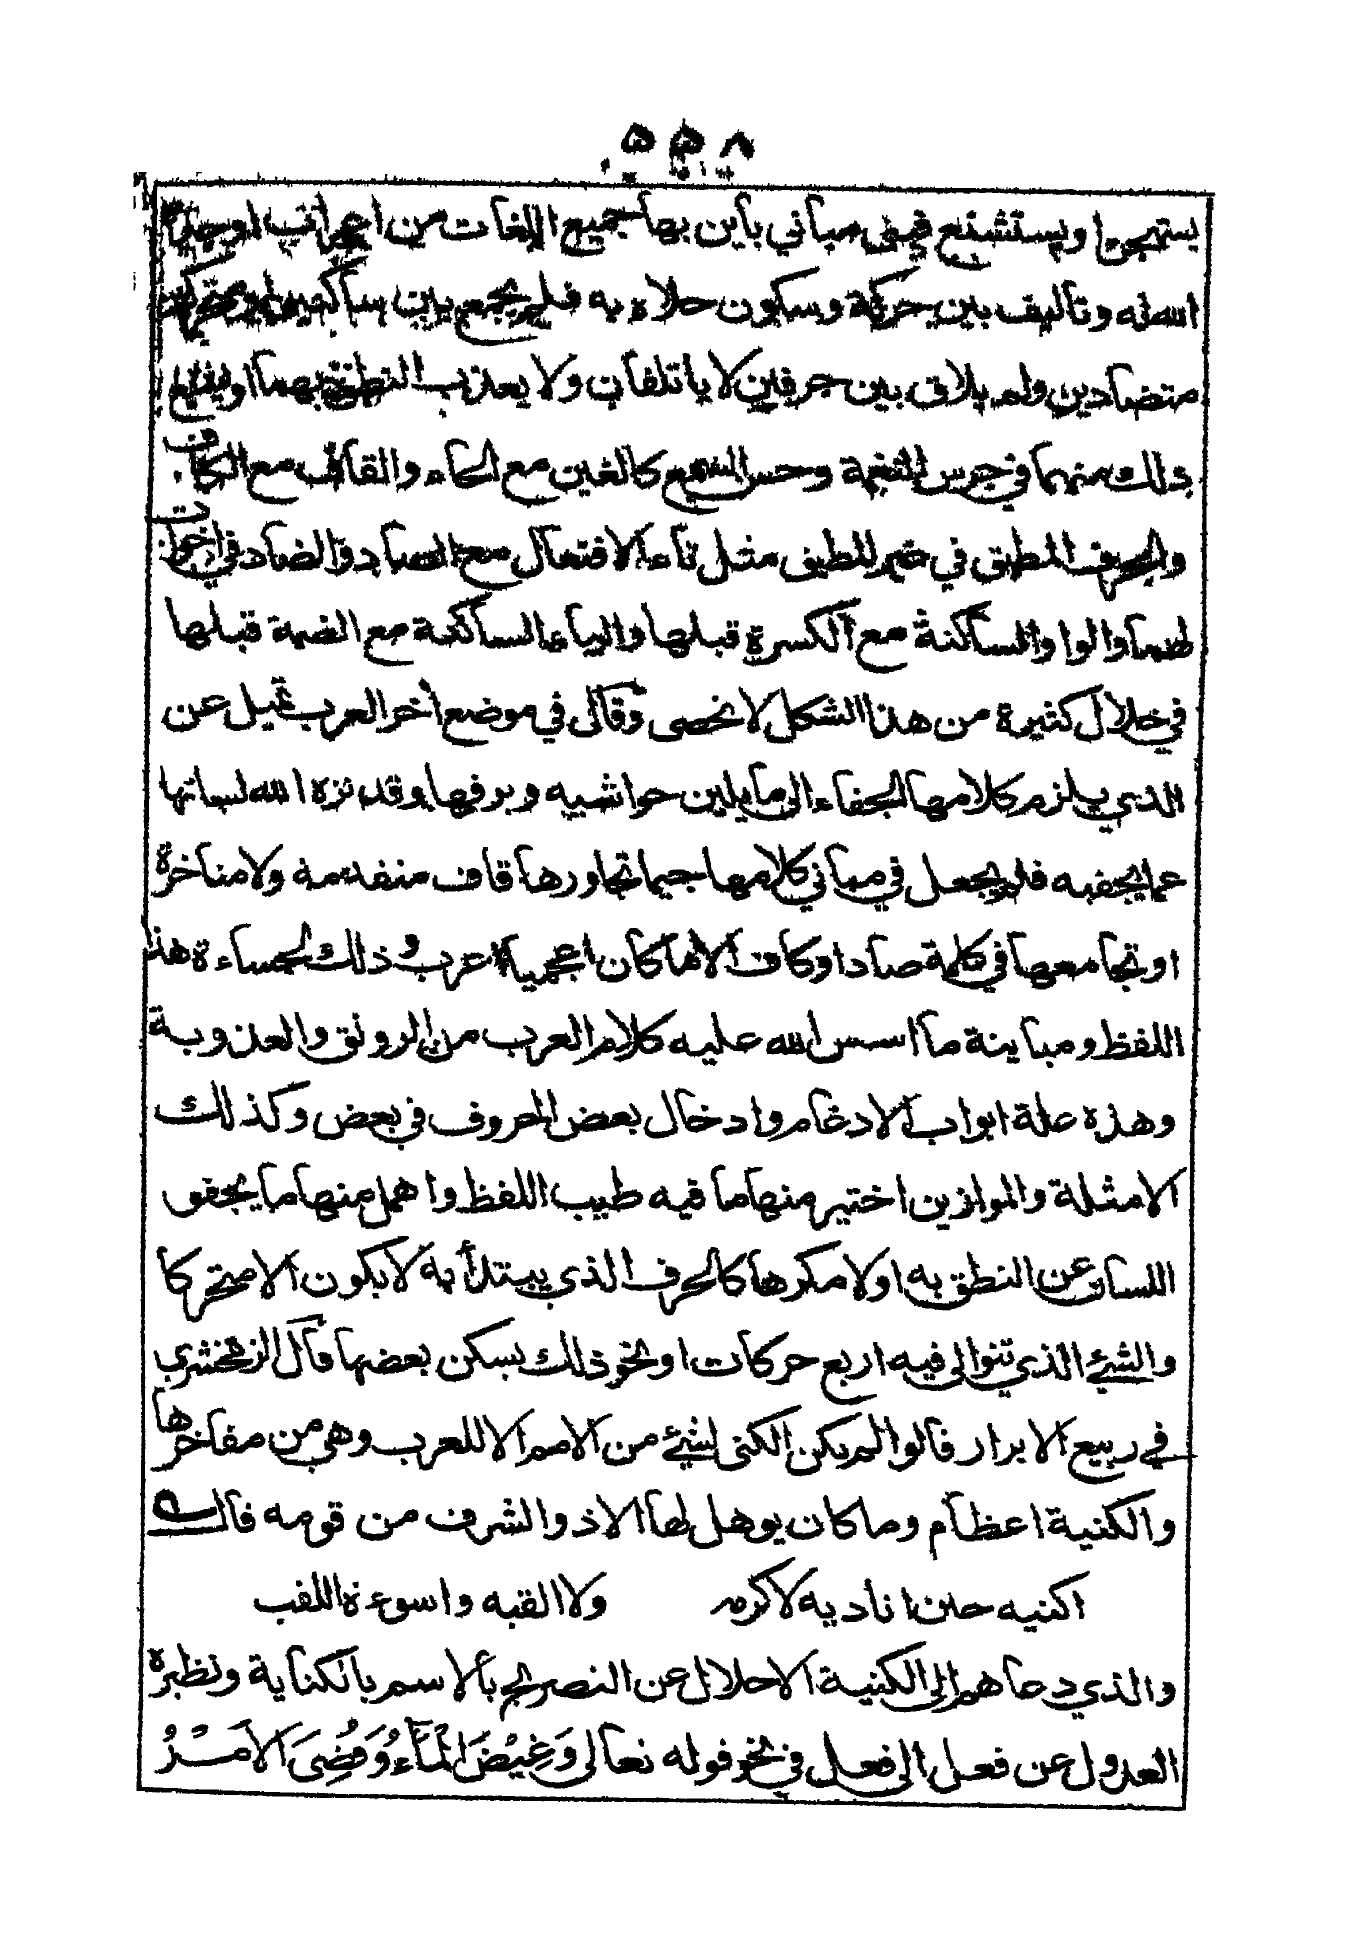 ٥٥٨
يستهجن او يستشنع ففي مباني باين بها جميع اللغات من اعراب اوجده
الله له وتاليف بين حركة وسكون حلاه به فلم يجمع بين ساكنين او متحركين
متضادين ولم يلاق بين حرفين لا ياتلفان ولا يعذب النطق بهما او يشنع
ذلك منهما في جرس النغمة وحس السمع كالغين مع الحاء والقاف مع الكاف
والحرف المطبق في غير المطبق مثل تاء الافتعال مع الصاد والضاد في اخوات
لهما والواو الساكنة مع الكسرة قبلها والياء الساكنة مع الضمة قبلها
في خلال كثيرة من هذا الشكل لا تحصى وقال في موضع اخر العرب تميل عن
الذي يلزم كلامها الجفاء الى ما يلين حواشيه ويرقها وقد نزه الله لسانها
عما يجفيه فلم يجعل في مباني كلامها جيما تجاورها قاف متقدمة ولا متاخرة
او تجامعها في كلمة صاد او كاف الا ما كان اعجميا اعرب وذلك لجساءة هذا
اللفظ ومباينة ما اسس الله عليه كلام العرب من الرونق والعذوبة
وهذه علة ابواب الادغام وادخال بعض الحروف في بعض وكذلك
الامثلة والموازين اختير منها ما فيه طيب اللفظ واهمل منها ما يجفو
اللسان عن النطق به اولا مكرها كالحرف الذي يبتدأ به لا يكون الا متحركا
والشئ الذي تتوالى فيه اربع حركات او نحو ذلك يسكن بعضها قال الزمخشري
في ربيع الابرار قالوا لم يكن الكنى لشئ من الامم الا للعرب وهي من مفاخرها
والكنية اعظام وما كان يوهل لها الا ذو الشرف من قومه قال
اكنيه حين اناديه لاكرمه ولا القبه والسوءة اللقب
والذي دعاهم الى الكنية الاجلال عن التصريح بالاسم بالكناية ونظيره
العدول عن فعل الى فعل في نحو قوله تعالى وَغِيْضَ الْمَاءُ وَقُضِيَ الْاَمْرُ